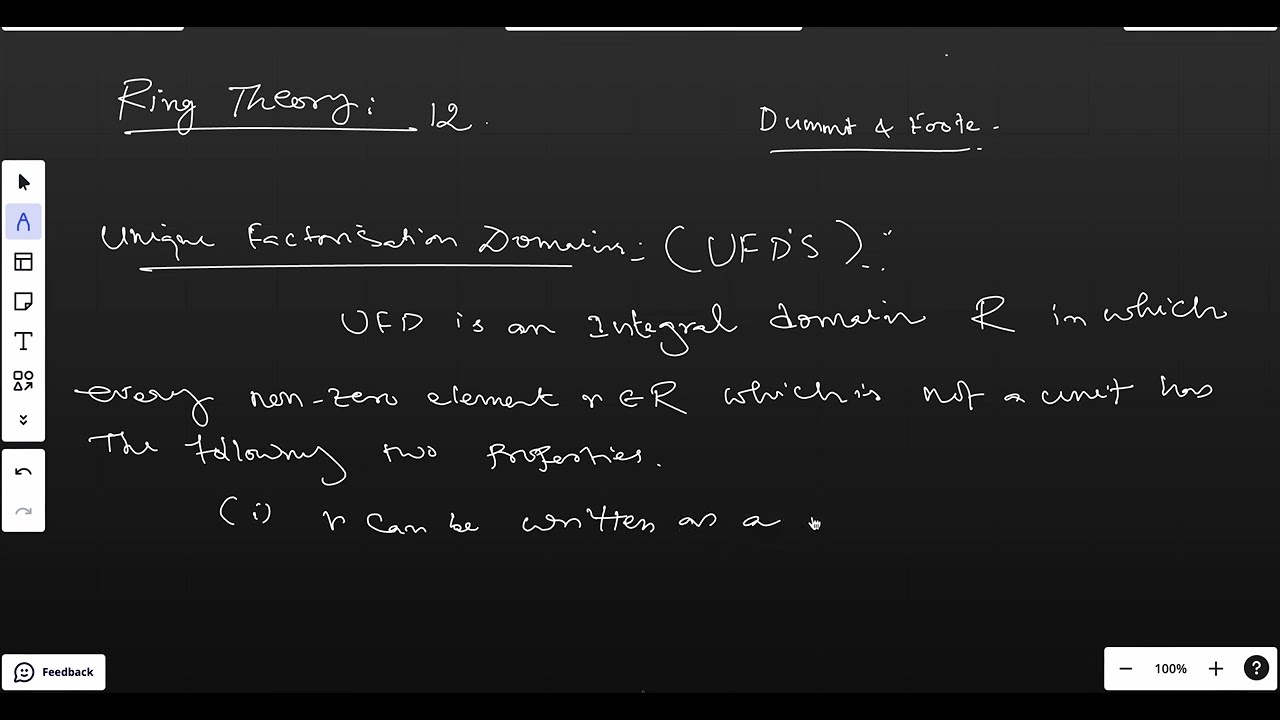 Ring Theory: 12.
Dummit & Foote.
Unique Factorisation Domains: (UFD'S):
UFD is an Integral domain R in which
every non-zero element r ∈ R which is not a unit has
The following two properties.
(i) r can be written as a
Feedback
100%